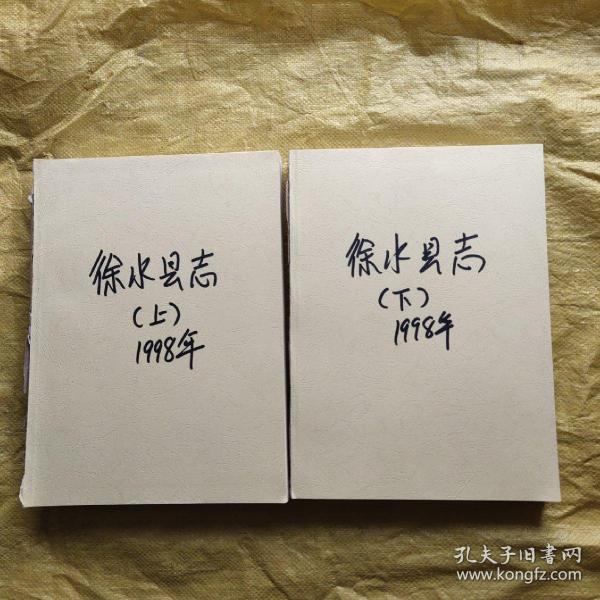 徐水县志
(上)
1998年
徐水县志
(下)
1998年
孔夫子旧書网
www.kongfz.com